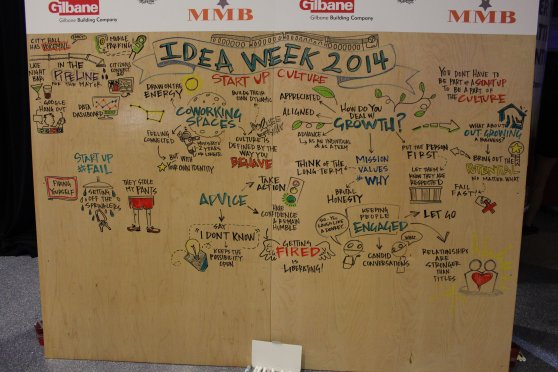 Gilbane
Gilbane Building Company
MMB
Gilbane
Gilbane Building Company
MMB
IDEA WEEK 2014
START UP CULTURE
CITY HALL
HAS
MOBILE
PARKING
LATE
NIGHT
BAR
IN THE
PIPELINE
FOR THE MAYOR
CITIZENS
CONNECT
GOOGLE
HANG
OUT
DATA
DASHBOARD
START UP
#FAIL
FIRING
YOURSELF
SETTING
OFF THE
SPRINKLERS
THEY STOLE
MY
PANTS
DRAW ON THE
ENERGY
COWORKING
SPACES
FEELING
CONNECTED
BUT WITH
YOUR OWN IDENTITY
CULTURE
DEFINED BY
THE WAY
YOU
BEHAVE
ADVICE
SAY
I DON'T KNOW
KEEPS THE
POSSIBILITY
OPEN
TAKE
ACTION
HIGH
CONFIDENCE
& REMAIN
HUMBLE
GETTING
FIRED
IS
LIBERATING!
APPRECIATED
ALIGNED
ADVANCE
AS AN INDIVIDUAL
AS A TEAM
HOW DO YOU
DEAL W/
GROWTH?
THINK OF THE
LONG TERM
BRUTAL
HONESTY
MISSION
VALUES
WHY
KEEPING
PEOPLE
ENGAGED
CANDID
CONVERSATIONS
YOU DON'T HAVE TO
BE PART OF A STARTUP
TO BE A PART
OF THE
CULTURE
WHAT ABOUT
OUT GROWING
A BUSINESS?
PUT THE PERSON
FIRST
LET THEM
KNOW THEY ARE
RESPECTED
BRING OUT THE
POTENTIAL
NO MATTER WHAT
FAIL
FAST!
LET GO
RELATIONSHIPS
ARE
STRONGER
THAN
TITLES